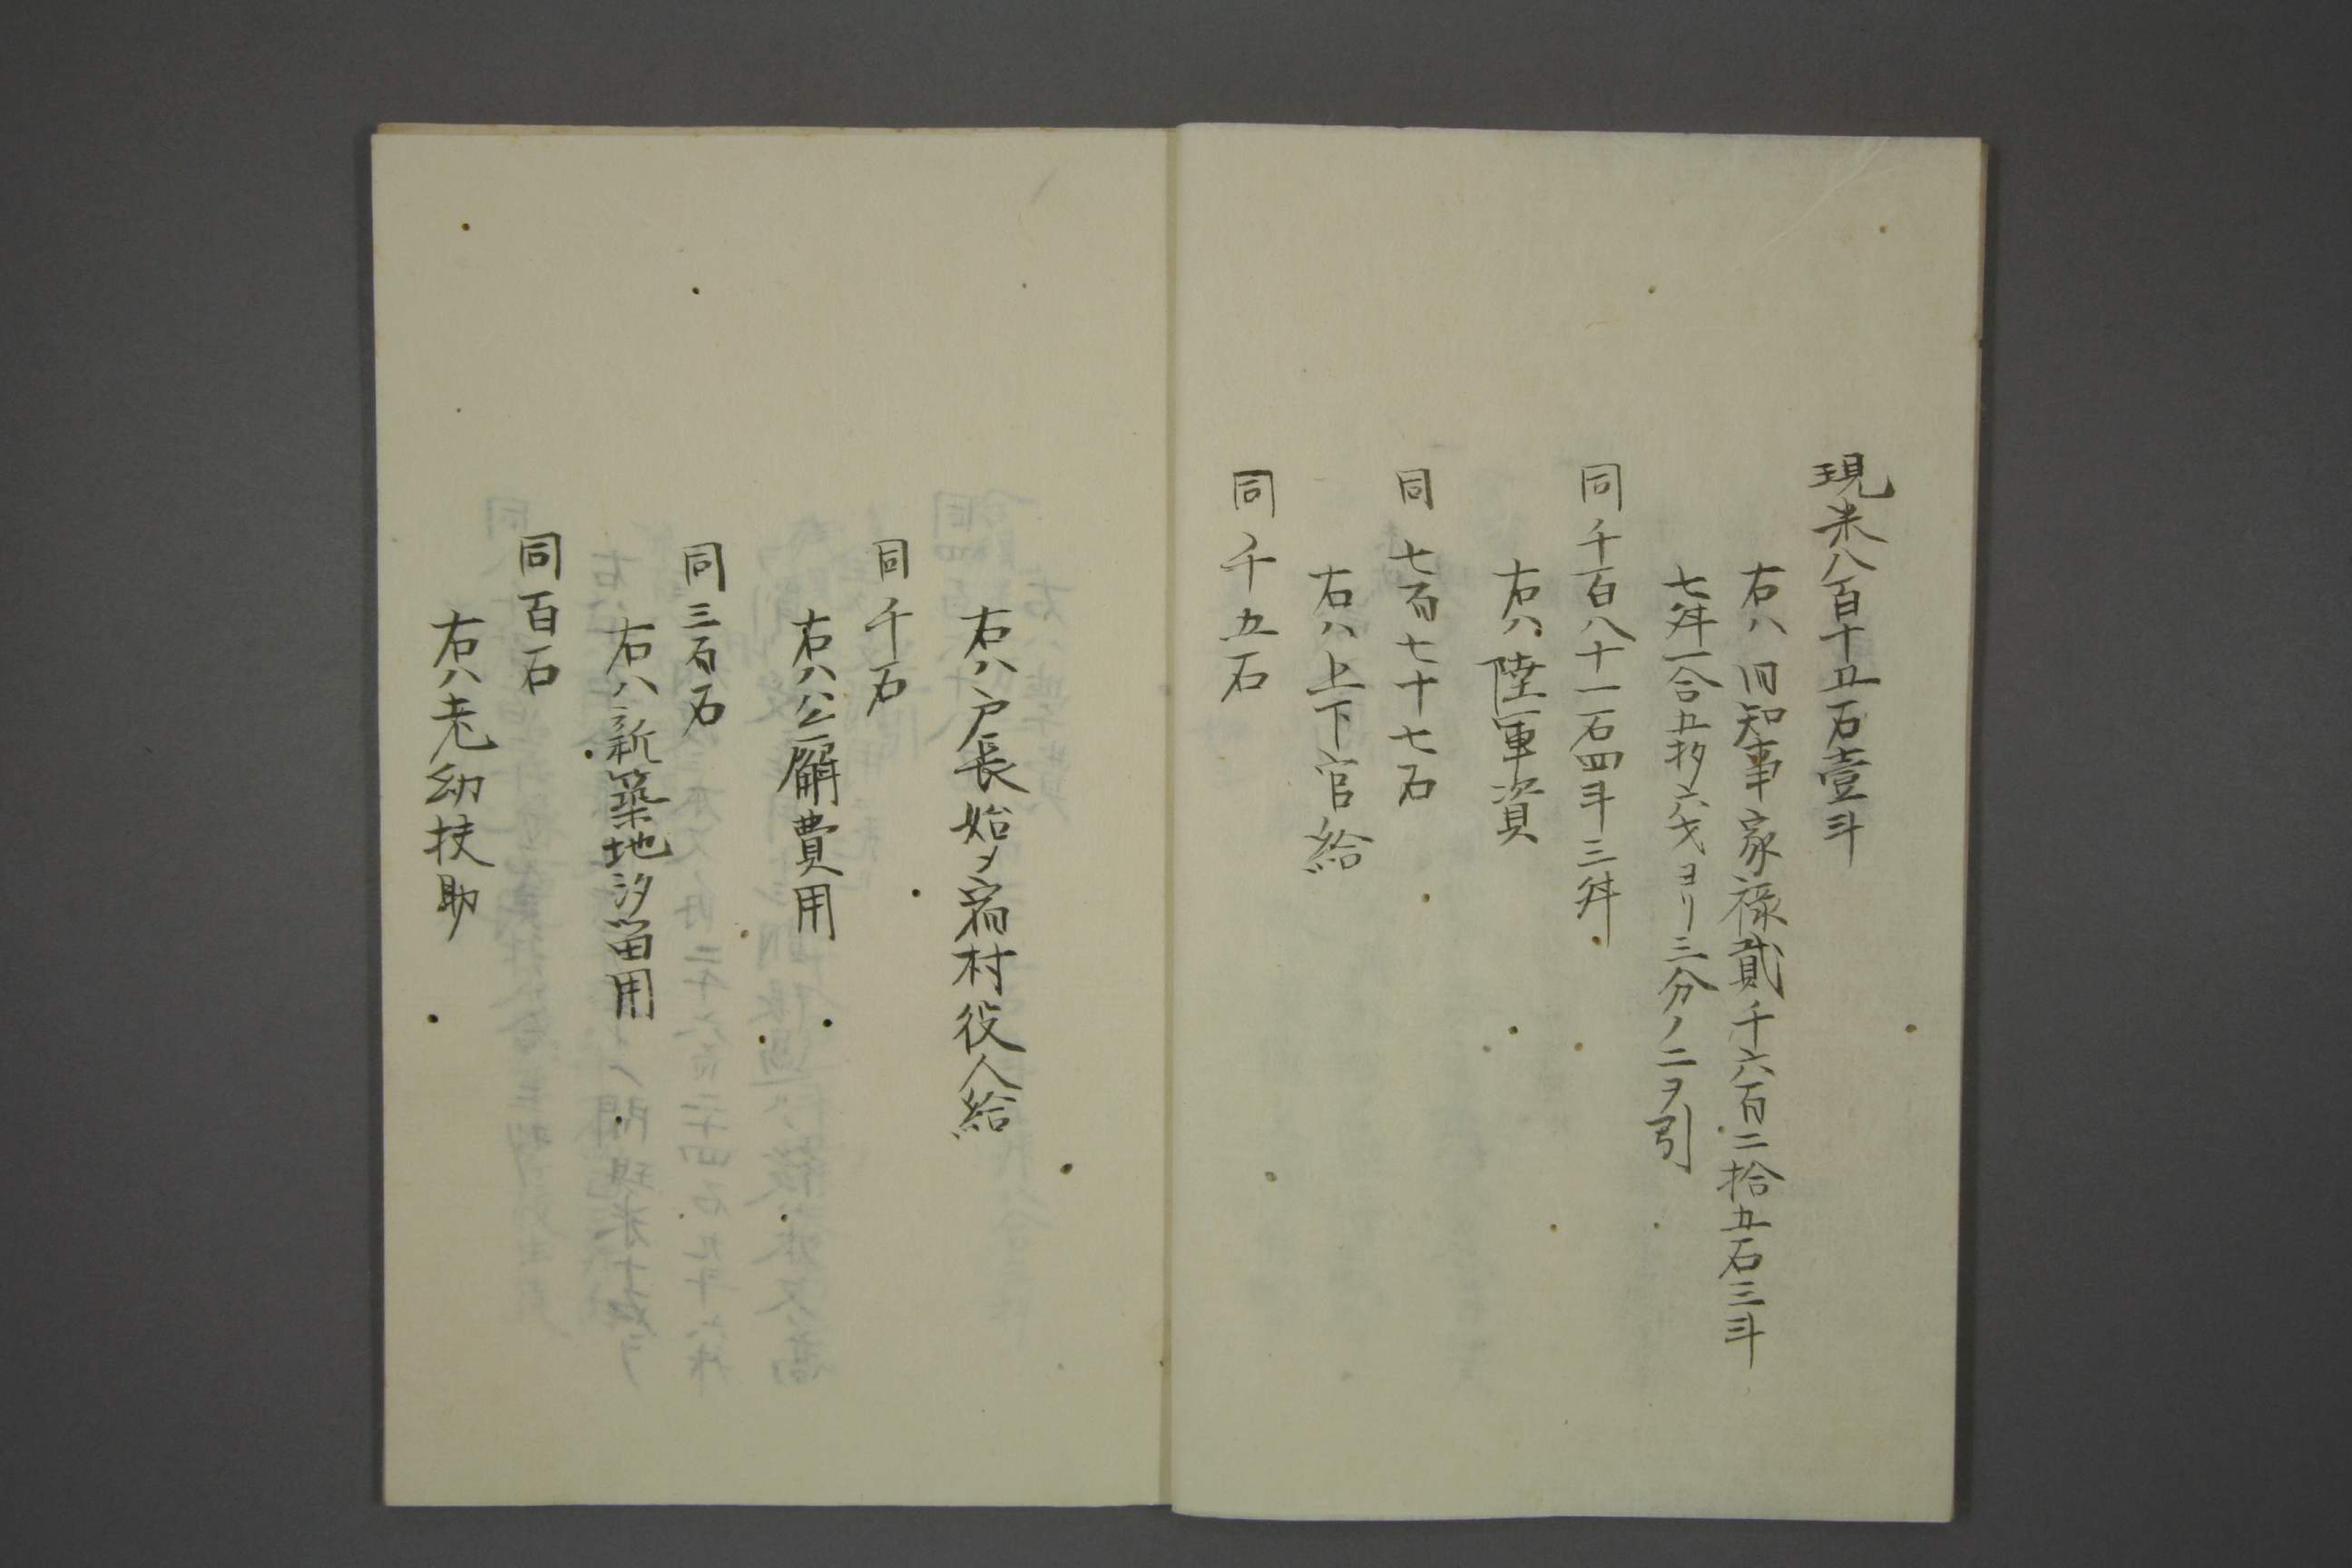 現米八百十五石壹斗
右ハ旧知事家禄貳千六百二拾五石三斗
七舛一合五抄六才ヨリ三分ノ二ヲ引
同千百八十一石四斗三舛
右ハ陸軍資
同七百七十七石
右ハ上下官給
同千五石
右ハ戸長始メ宿村役人給
同千石
右ハ公廨費用
同三百石
右ハ新築地汐留用
同百石
右ハ老幼扶助